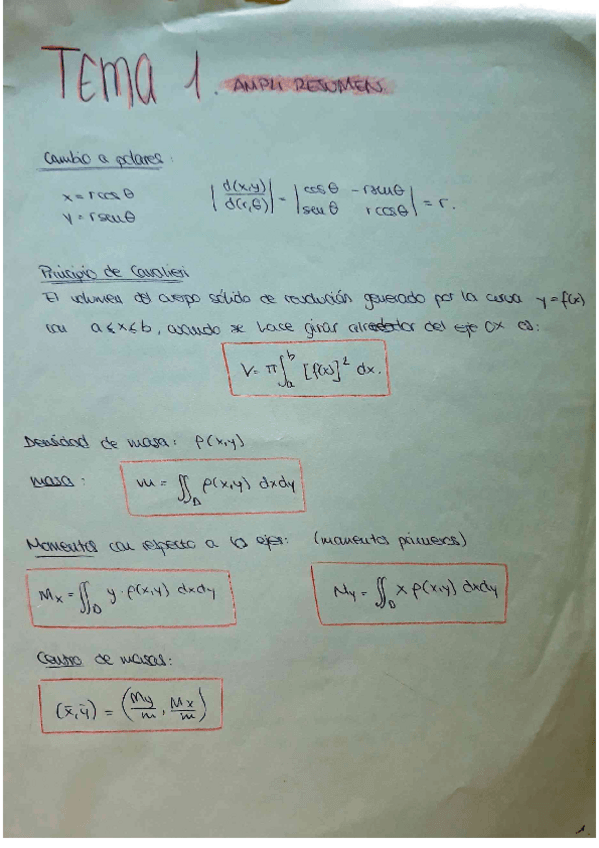 TEMA 1. AMPLI RESUMEN
Cambio a polares:
x = r cos θ
y = r sen θ
|d(x,y)/d(r,θ)| = |cos θ  -r sen θ; sen θ  r cos θ| = r.
Principio de Cavalieri
El volumen del cuerpo sólido de revolución generado por la curva y=f(x)
con a≤x≤b, cuando se hace girar alrededor del eje OX es:
V = π∫_a^b [f(x)]² dx.
Densidad de masa: ρ(x,y)
masa: m = ∬_D ρ(x,y) dxdy
Momentos con respecto a los ejes: (momentos primeros)
Mx = ∬_D y·ρ(x,y) dxdy
My = ∬_D x ρ(x,y) dxdy
Centro de masas:
(x̄,ȳ) = (My/m, Mx/m)
1.